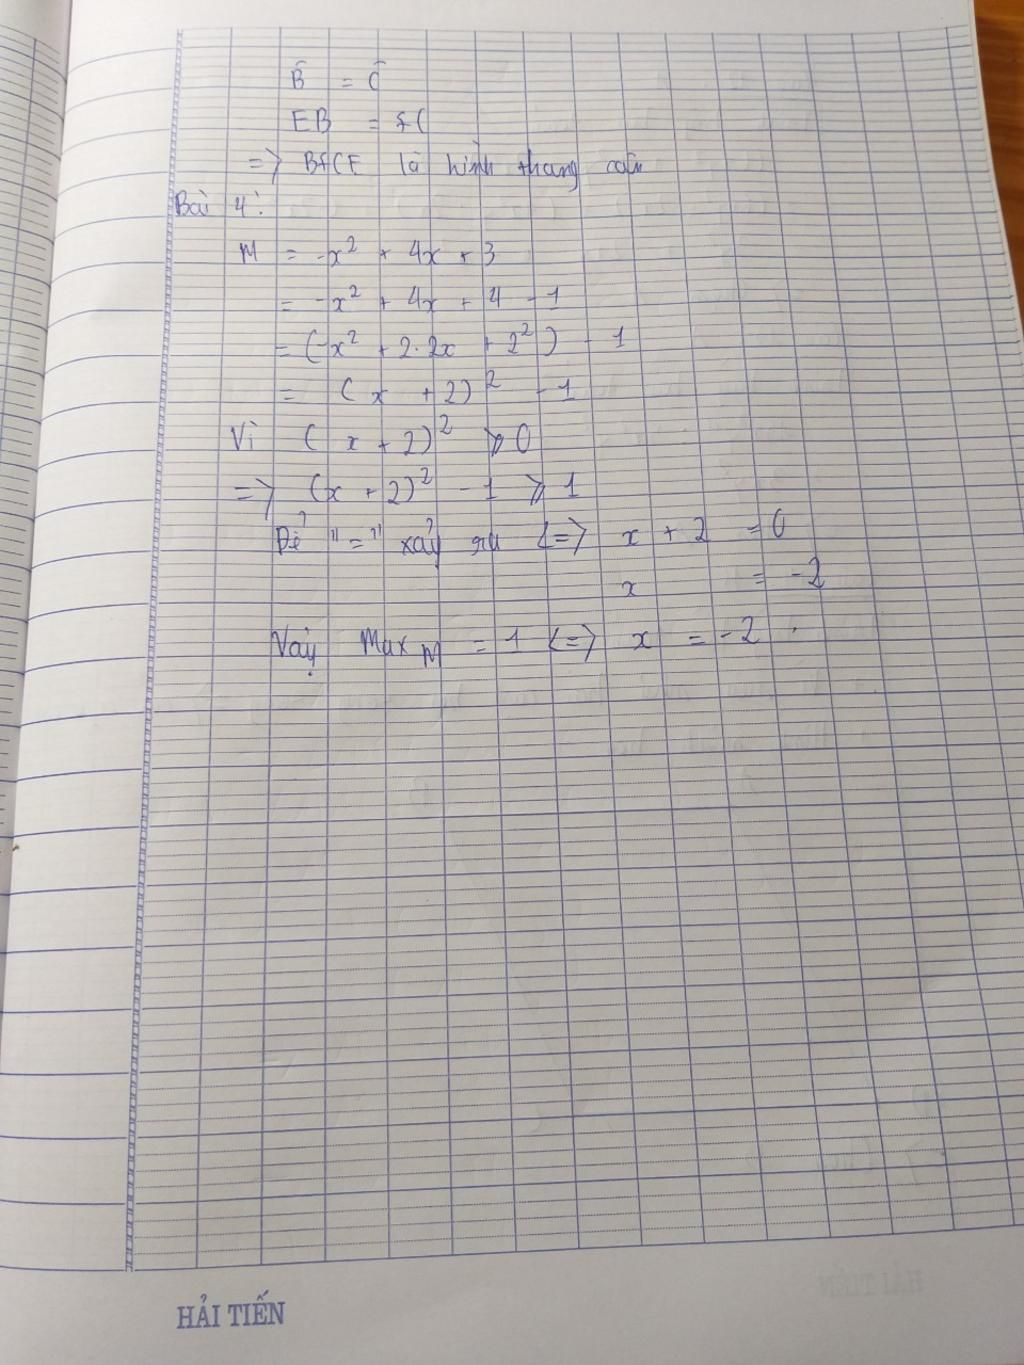 B̂ = Ĉ
EB = FC
=> BFCE là hình thang cân
Bài 4:
M = -x² + 4x + 3
= -x² + 4x + 4 - 1
= (-x² + 2.2x + 2²) - 1
= (x + 2)² - 1
Vì (x + 2)² ⩾ 0
=> (x + 2)² - 1 ⩾ 1
Để "=" xảy ra <=> x + 2 = 0
x = -2
Vậy Max M = 1 <=> x = -2
HẢI TIẾN